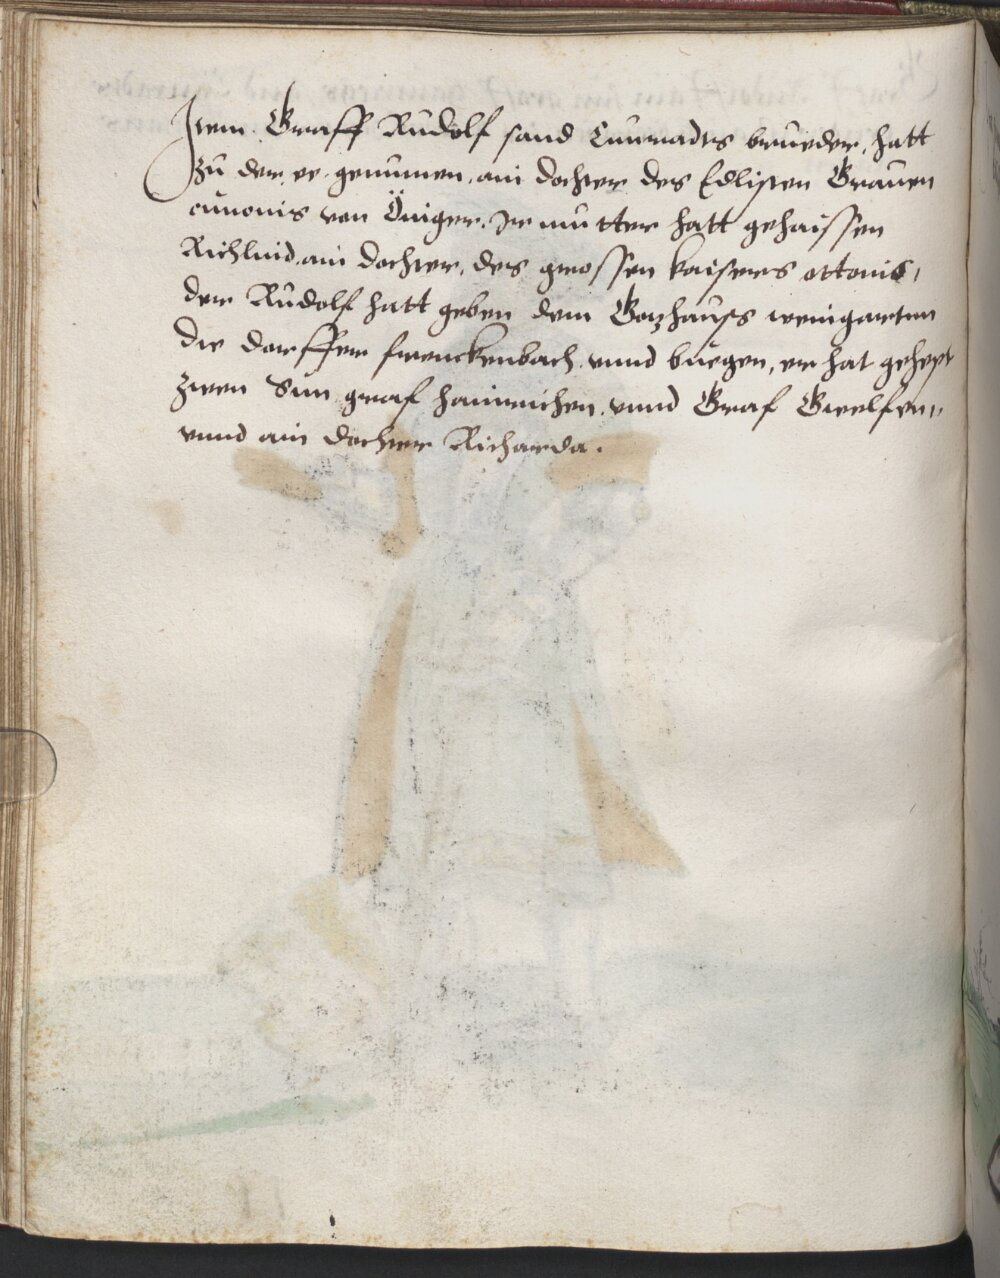 Item. Graff Rudolf sand Cuonradts bruoder, hatt
zu der ee. genumen. ain dochter des Edlisten Graven
cunonis von Öniger. Ir muotter hatt gehaissen
Richlind. ain dochter, des grossen kaisers ottonis,
der Rudolf hatt geben dem Gozhauss weingarten
die dorffer frenckenbach. vnnd buegen, er hat gehept
zwen Sun. graf hainrichen. vnnd Graf Gwelfen,,
vnnd ain dochter Richarda.